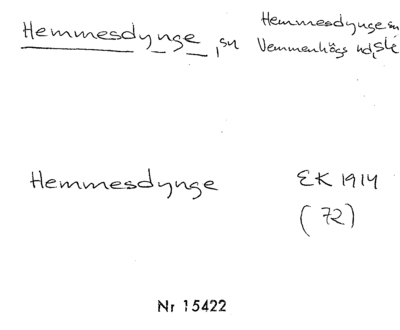 Hemmesdynge, sn Hemmesdynge sn
Vemmenhögs hd, Sk
Hemmesdynge EK 1914
(72)
Nr 15422